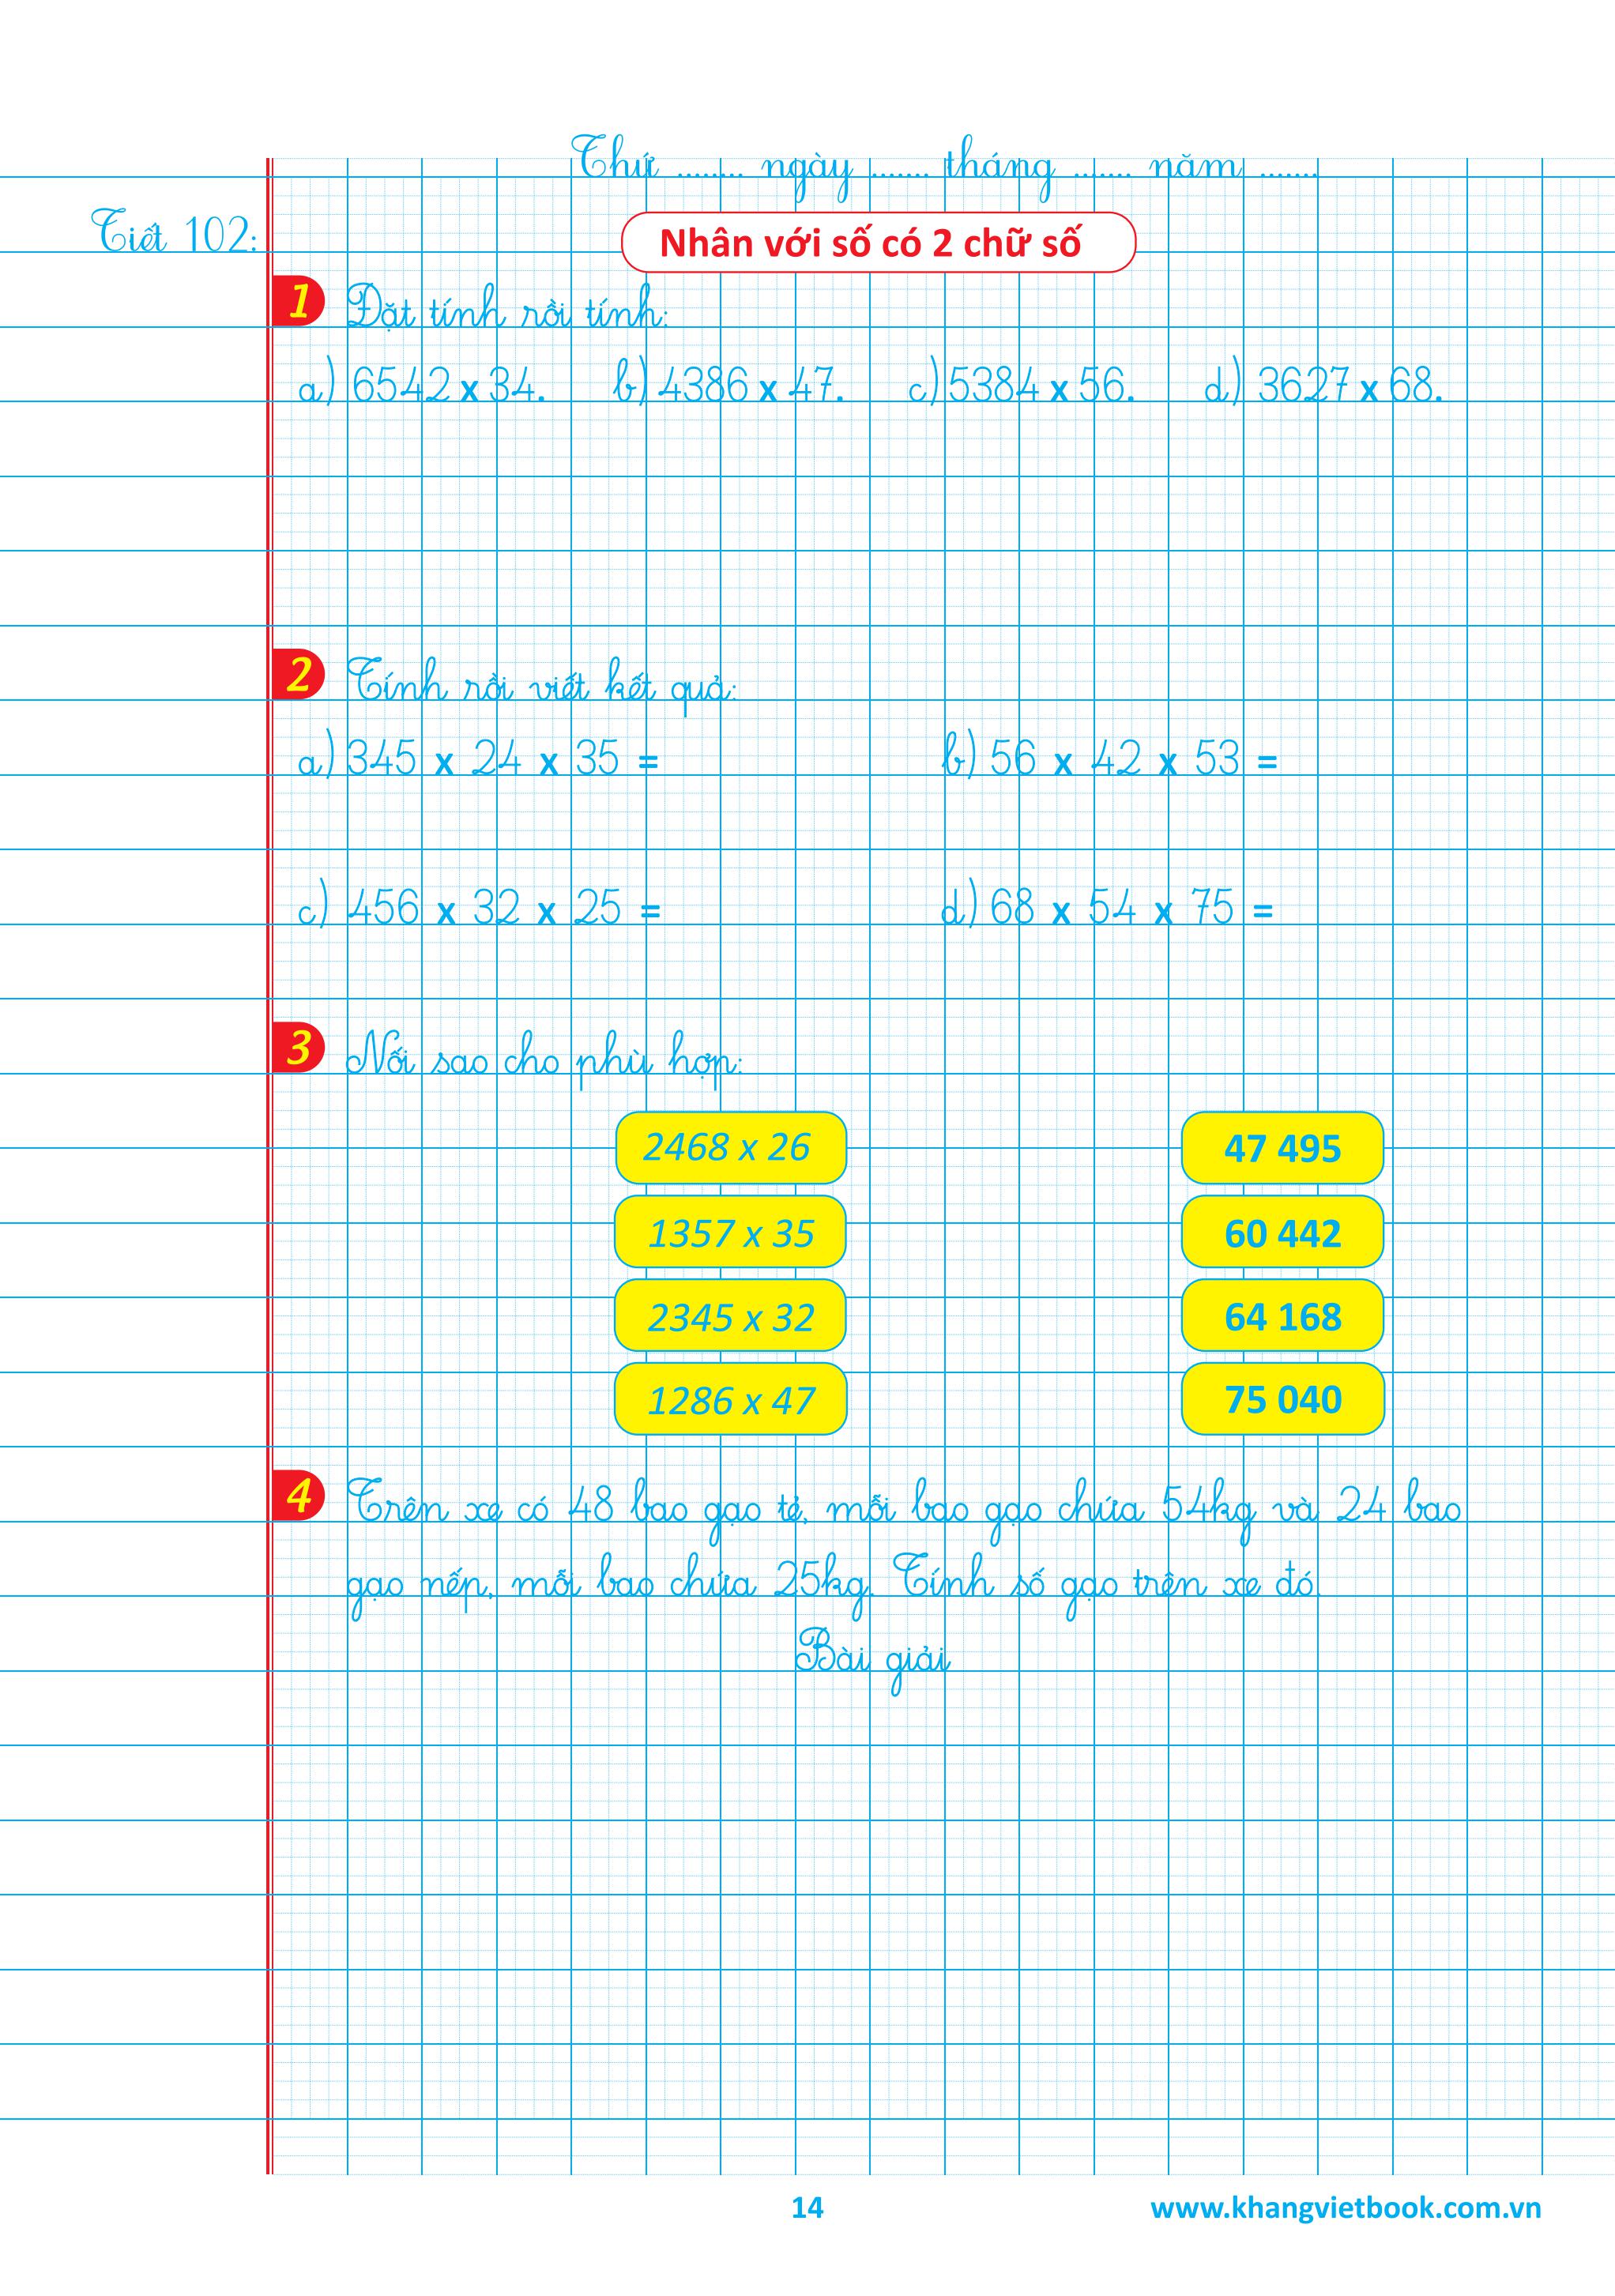 Thứ ........ ngày ....... tháng ....... năm .......
Tiết 102:
Nhân với số có 2 chữ số
1 Đặt tính rồi tính:
a) 6542 x 34. b) 4386 x 47. c) 5384 x 56. d) 3627 x 68.
2 Tính rồi viết kết quả:
a) 345 x 24 x 35 = b) 56 x 42 x 53 =
c) 456 x 32 x 25 = d) 68 x 54 x 75 =
3 Nối sao cho phù hợp:
2468 x 26 47 495
1357 x 35 60 442
2345 x 32 64 168
1286 x 47 75 040
4 Trên xe có 48 bao gạo tẻ, mỗi bao gạo chứa 54kg và 24 bao
gạo nếp, mỗi bao chứa 25kg. Tính số gạo trên xe đó.
Bài giải
14 www.khangvietbook.com.vn